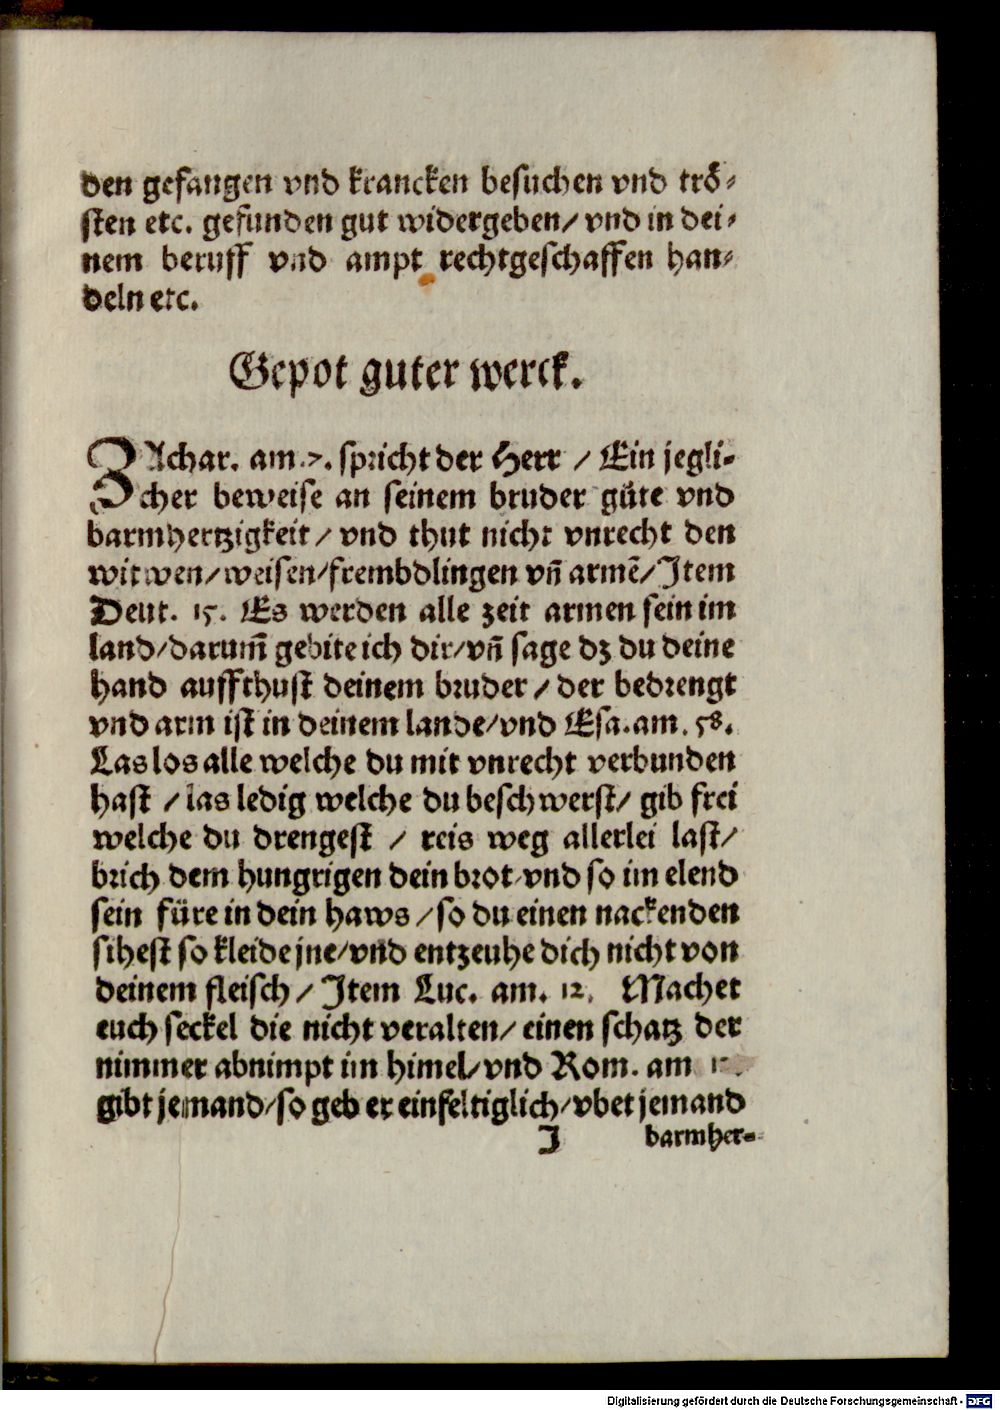 den gefangen vnd krancken besuchen vnd trö⸗
sten etc. gefunden gut widergeben/ vnd in dei⸗
nem beruff vnd ampt rechtgeschaffen han⸗
deln etc.
Gepot guter werck.
ZAchar. am .7. spricht der Herr / Ein jegli⸗
cher beweise an seinem bruder güte vnd
barmhertzigkeit/ vnd thut nicht vnrecht den
witwen/weisen/frembdlingen vñ armẽ/Item
Deut. 15. Es werden alle zeit armen sein im
land/darum̃ gebite ich dir/vñ sage dz du deine
hand auffthust deinem bruder/ der bedrengt
vnd arm ist in deinem lande/vnd Esa.am. 58.
Las los alle welche du mit vnrecht verbunden
hast /las ledig welche du beschwerst/ gib frei
welche du drengest / reis weg allerlei last/
brich dem hungrigen dein brot/vnd so im elend
sein füre in dein haws /so du einen nackenden
sihest so kleide jne/vnd entzeuhe dich nicht von
deinem fleisch/ Item Luc. am. 12. Machet
euch seckel die nicht veralten/ einen schatz der
nimmer abnimpt im himel/vnd Rom. am
gibt jemand/so geb er einfeltiglich/vbet jemand
I barmher⸗
Digitalisierung gefördert durch die Deutsche Forschungsgemeinschaft - DFG